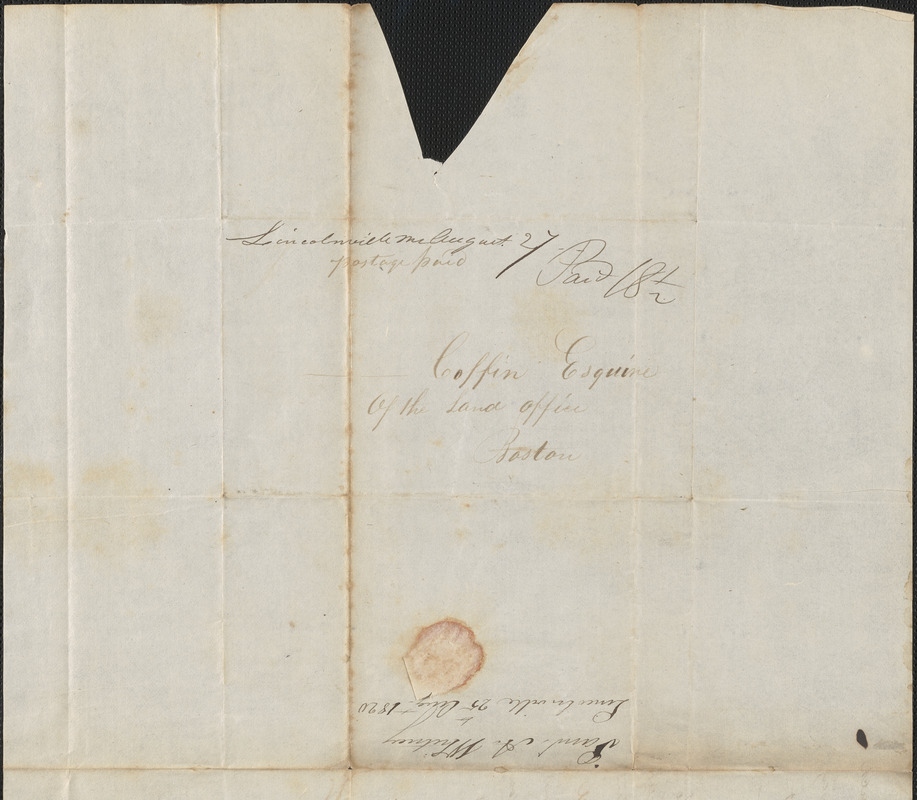 Lincolnville Me August 27
postage paid
Paid 18 1/2
Coffin Esquire
Of the Land office
Boston
Saml. A. Whitney
Lincolnville 25 Augt. 1820